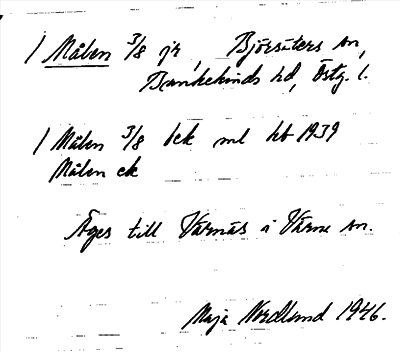 1 Målen 3/8 jr, Björsäters sn,
Bankekinds hd, Östg. l.
1 Målen 3/8 bek ml hb 1939
Målen ek
Äges till Värnäs i Värna sn.
Maja Nordlund 1946.